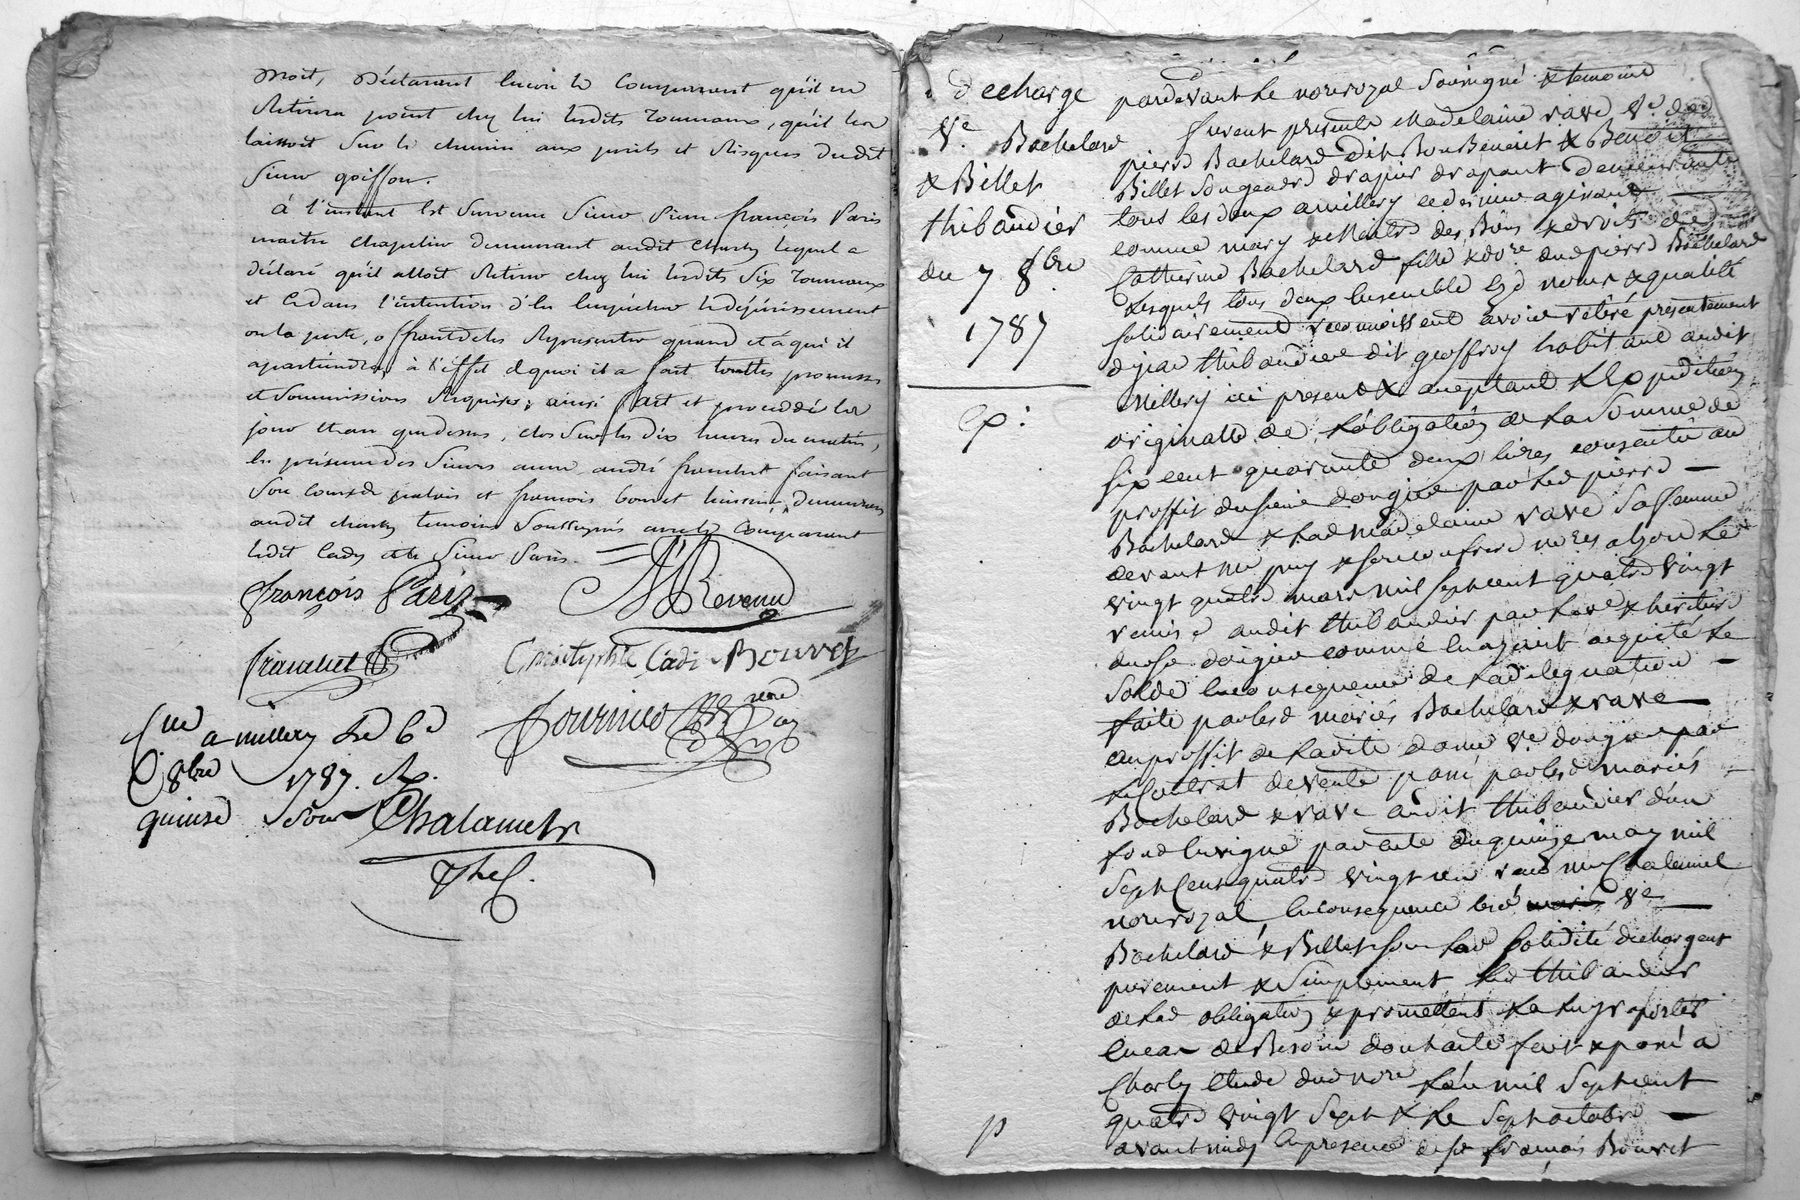 droit, Déclarant encore le Comparant qu'il ne
Retirera point chez lui lesdits Tonneaux, qu'il les
laissoit sur le chemin aux perils et Risques dudit
Sieur goiffon.
à l'instant Est Survenu Sieur Pierre françois Paris
maitre Chapelier demeurant audit Charly lequel a
déclaré qu'il alloit Retirer chez lui lesdits Six Tonneaux
et ce dans l'intention d'en empêcher le dépérissement
ou la perte, offrant de les Représenter quand et à qui il
apartiendra, à l'effet de quoi il a fait touttes promesses
et Soumissions Requises; ainsi fait et procédé les
jour et an que dessus, clos sur les dix heures du matin,
en présence des Sieurs andré franchet faisant
Son Cours de et francois bouvet demeurants
audit charly temoins Soussignés avec le Comparant
ledit Cady et le Sieur Paris.
françois Paris Revenu
franchet Christophle Cadi Bouvet
Fournier
Cné a millery Le 6e
8bre 1787. R.
quinse sous Chalamel
decharge
Ve. Bachelard
& Billet
thibaudier
du 7 8bre
1787
Ex:
pardevant Le no.re royal Soussigné & temoins
furent presents Madelaine rave Ve. de
pierre Bachelard dit Bon Benoit & Benoit
Billet Son gendre drapier drapant demeurants
tous les deux a millery ce dernier agissant
comme mary & Maitre des Biens & droits de
Catherine Bachelard fille & dud pierre Bachelard
Lesquels tous deux Ensemble Esd noms & qualité
Solidairement reconnoissent avoir rétiré présentement
de jean thibaudier dit geoffroy habitant audit
Millery ici present & acceptant L'Expedition
originalle de L'obligation de La Somme de
Six cent quarante deux livres consentie au
proffit du sieur dorgine par led pierre
Bachelard & lad Madelaine rave Sa femme
devant me puy & son confrere nores a lyon Le
vingt quatre mars mil Sept cent quatre vingt
remise audit thibaudier par La ve. & heritiers
dud sr. dorgine comme Layant acquité Le
Solde Enconsequence de La délégation
faite par lesd mariés Bachelard & rave
au proffit de Ladite dame Ve. dorgine par
Le Contrat de vente passé par lesd mariés
Bachelard & rave audit thibaudier d'un
fond En vigne par acte du quinze may mil
Sept Cent quatre vingt un reçu me Chalamel
no.re royal, Enconsequence lesd Ve.
Bachelard & Billet Sous Lad Solidité dechargent
purement & Simplement led thibaudier
de Lad obligation & promettent La luy raporter
En cas de Besoin dont acte fait & passé a
Charly Etude dud nore L'an mil Sept cent
quatre vingt Sept & Le Sept octobre
avant midy En presence de sr. francois Bouvet
p